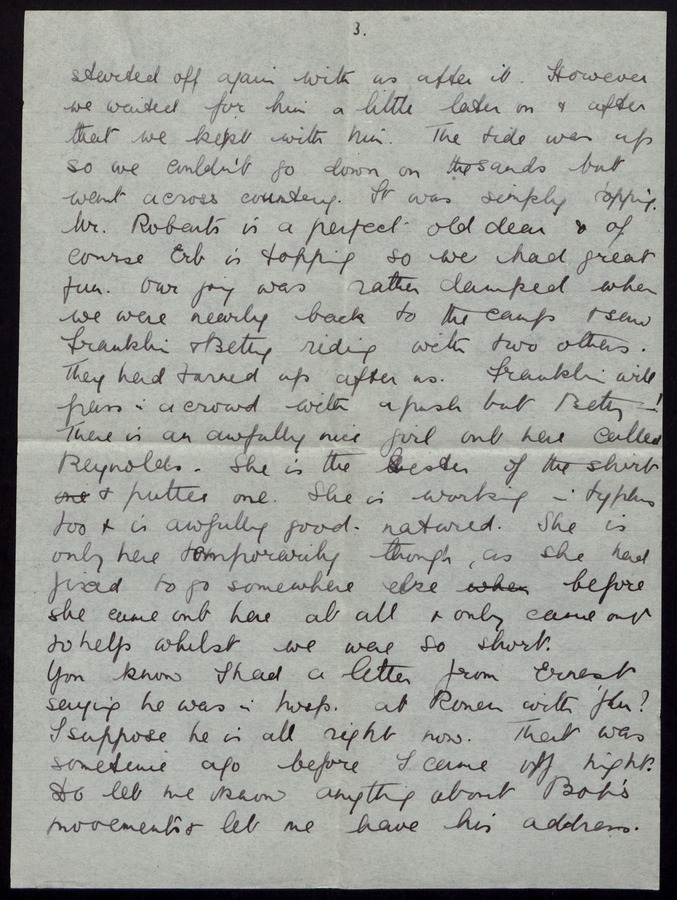 3.
started off again with us after it. However
we waited for him a little later on & after
that we kept with him. The tide was up
so we couldn't go down on the sands but
went across country. It was simply topping.
Mr. Roberts is a perfect old dear & of
course Erb is topping so we had great
fun. Our joy was rather damped when
we were nearly back to the camp & saw
Franklin & Betty riding with two others.
They had turned up after us. Franklin will
pass in a crowd with a push but Betty – !
There is an awfully nice girl out here called
Reynolds. She is the sister of the short
one & puttee one. She is working in typhus
too & is awfully good-natured. She is
only here temporarily though, as she had
fixed to go somewhere else when before
she came out here at all & only came out
to help whilst we were so short.
You know I had a letter from Ernest
saying he was in hosp. at Rouen with 'flu?
I suppose he is all right now. That was
sometime ago before I came off night.
Do let me know anything about Bob's
movements & let me have his address.